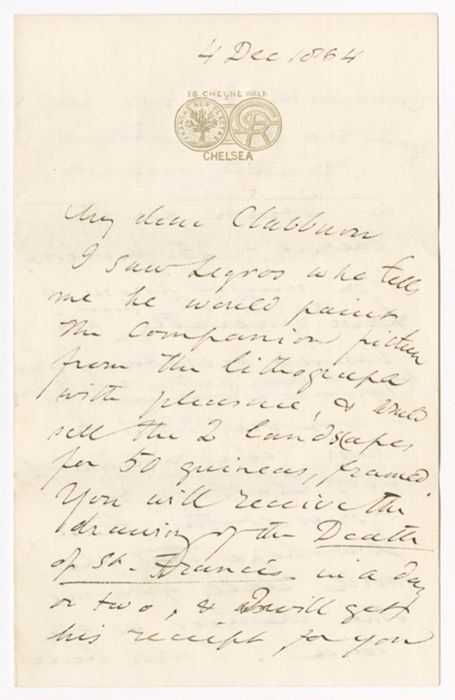 4 Dec 1864
16 CHEYNE WALK
FRANGAS NON FLECTAS
CHELSEA
My dear Clabburn
I saw Legros who tells
me he would paint
the companion picture
from the lithograph
with pleasure, & would
sell the 2 landscapes
for 50 guineas, framed
You will receive the
drawing of the Death
of St. Francis in a day
or two, & I will get
his receipt for you